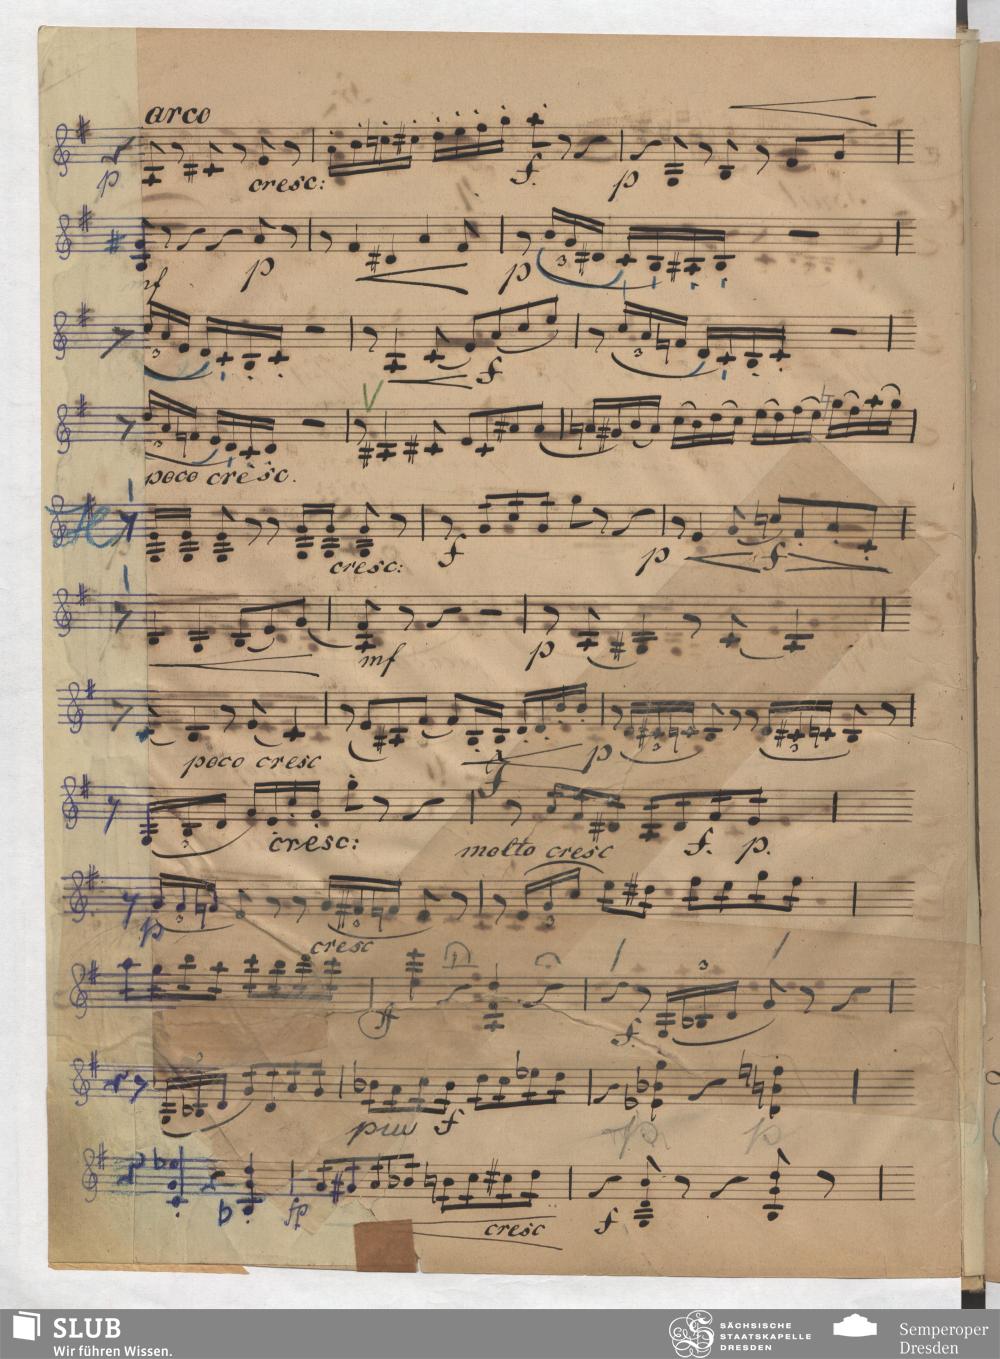 arco
p cresc: f. p
mf p p
3
3 f 3
3
poco cresc.
cresc: f p f
mf p
poco cresc f p 3 3
3 cresc: molto cresc f. p.
p 3 cresc 3
ff f. 3
3
piu f p p
fp cresc f
SLUB
Wir führen Wissen.
SÄCHSISCHE
STAATSKAPELLE
DRESDEN
Semperoper
Dresden